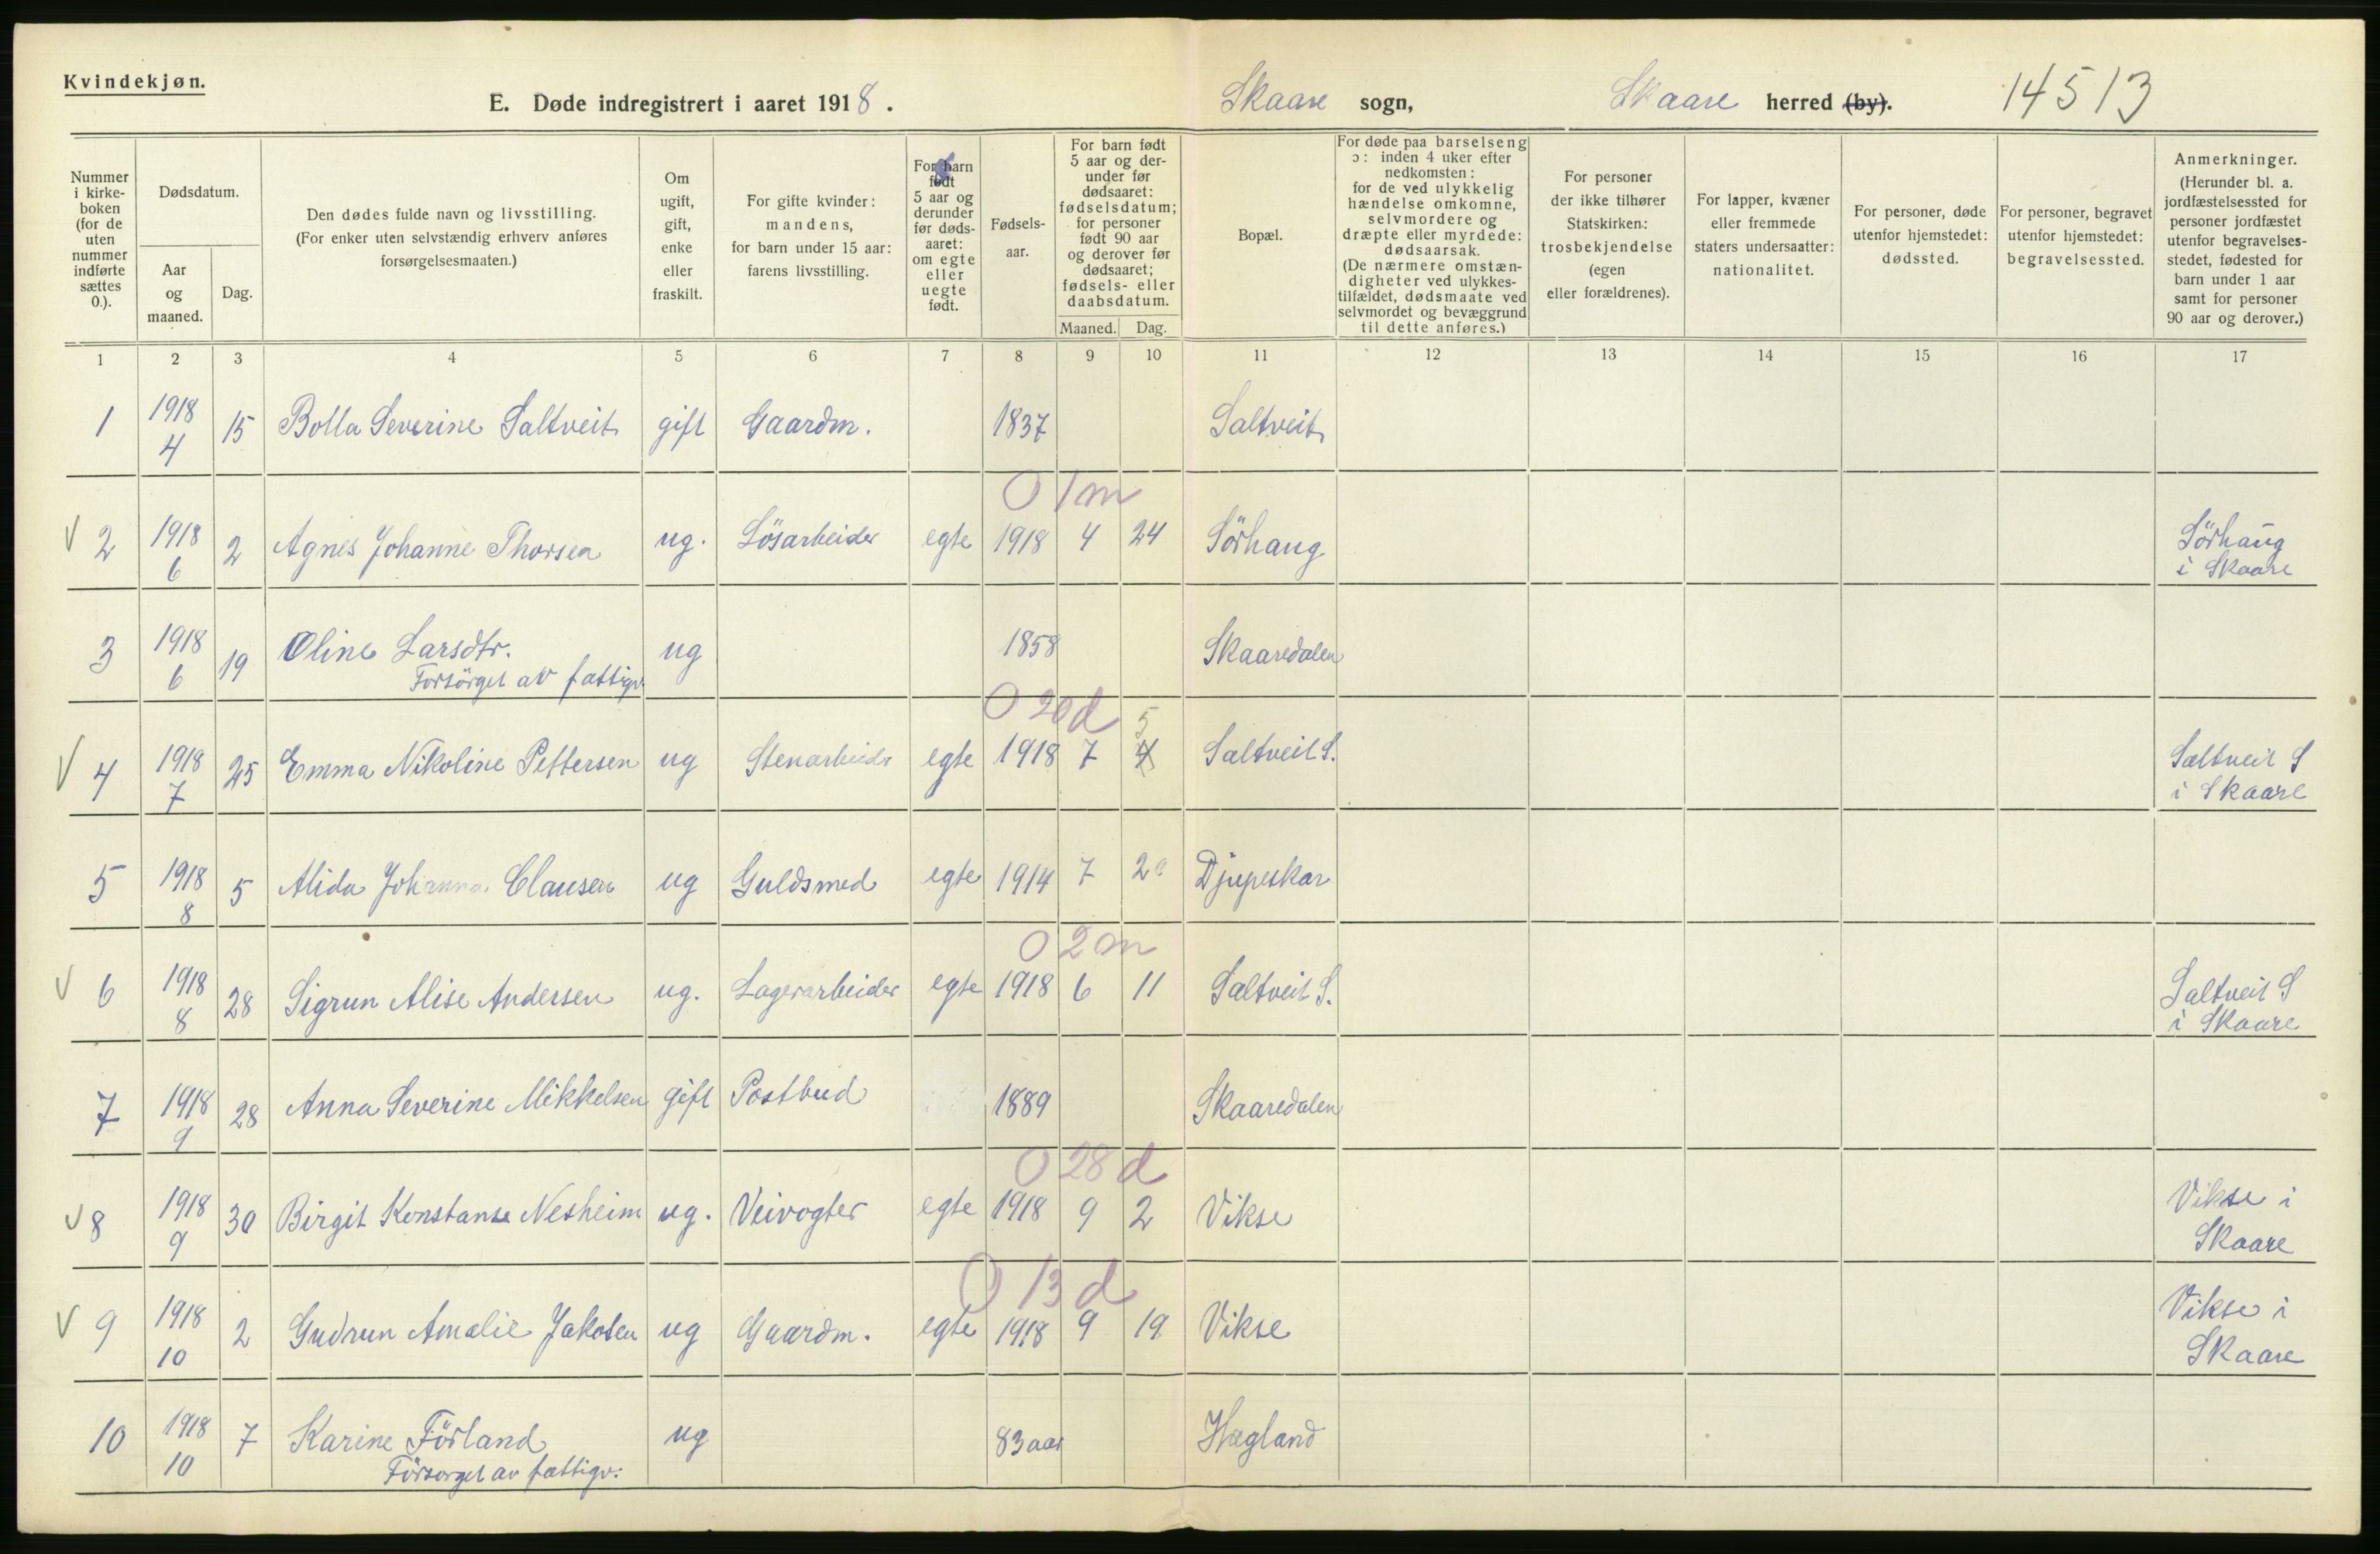 Kvindekjøn.
E. Døde indregistrert i aaret 1918. Skaare sogn, Skaare herred (by). 14513
Nummer i kirke-boken (for de uten nummer indførte sættes 0.).
Dødsdatum.
Aar og maaned.
Dag.
Den dødes fulde navn og livsstilling.
(For enker uten selvstændig erhverv anføres
forsørgelsesmaaten.)
Om ugift, gift, enke eller fraskilt.
For gifte kvinder: mandens, for barn under 15 aar: farens livsstilling.
For barn født 5 aar og derunder før døds-aaret: om egte eller uegte født.
Fødsels-aar.
For barn født 5 aar og der-under før dødsaaret: fødselsdatum; for personer født 90 aar og derover før dødsaaret; fødsels- eller daabsdatum.
Maaned. Dag.
Bopæl.
For døde paa barselseng ɔ: inden 4 uker efter nedkomsten: for de ved ulykkelig hændelse omkomne, selvmordere og dræpte eller myrdede: dødsaarsak. (De nærmere omstæn-digheter ved ulykkes-tilfældet, dødsmaate ved selvmordet og bevæggrund til dette anføres.)
For personer der ikke tilhører Statskirken: trosbekjendelse (egen eller forældrenes).
For lapper, kvæner eller fremmede staters undersaatter: nationalitet.
For personer, døde utenfor hjemstedet: dødssted.
For personer, begravet utenfor hjemstedet: begravelsessted.
Anmerkninger. (Herunder bl. a. jordfæstelsessted for personer jordfæstet utenfor begravelses-stedet, fødested for barn under 1 aar samt for personer 90 aar og derover.)
1 2 3 4 5 6 7 8 9 10 11 12 13 14 15 16 17
1 1918 4 15 Bolla Severine Saltveit gift Gaardm. 1837 Saltveit
0 1m
V 2 1918 6 2 Agnes Johanne Thorsen ug. Lösarbeider egte 1918 4 24 Sörhaug Sörhaug
i Skaare
3 1918 6 19 Oline Larsdtr. ug 1858 Skaaredalen
Forsörget av fattigv.
0 20d 5
V 4 1918 7 25 Emma Nikoline Pettersen ug Stenarbeider egte 1918 7 4 Saltveit S. Saltveit S
i Skaare
5 1918 8 5 Alida Johanna Clausen ug Guldsmed egte 1914 7 20 Djupeskar
0 2m
V 6 1918 8 28 Sigrun Alise Andersen ug. Lagerarbeider egte 1918 6 11 Saltveit S. Saltveit S
i Skaare
7 1918 9 28 Anna Severine Mikkelsen gift Postbud 1889 Skaaredalen
0 28d
V 8 1918 9 30 Birgit Konstanse Nesheim ug. Veivogter egte 1918 9 2 Vikse Vikse i
Skaare
0 13d
V 9 1918 10 2 Gudrun Amalie Jakobsen ug Gaardm. egte 1918 9 19 Vikse Vikse i
Skaare
10 1918 10 7 Karine Förland ug 83 aar Hægland
Försorget av fattigv: